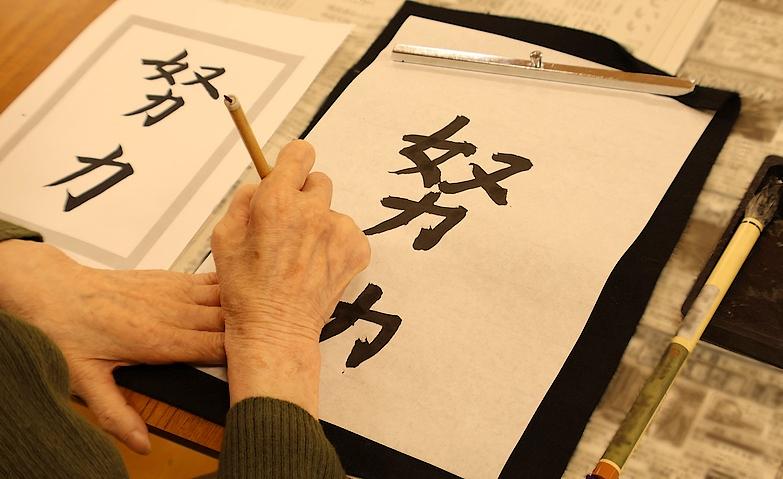 努
力
努
力